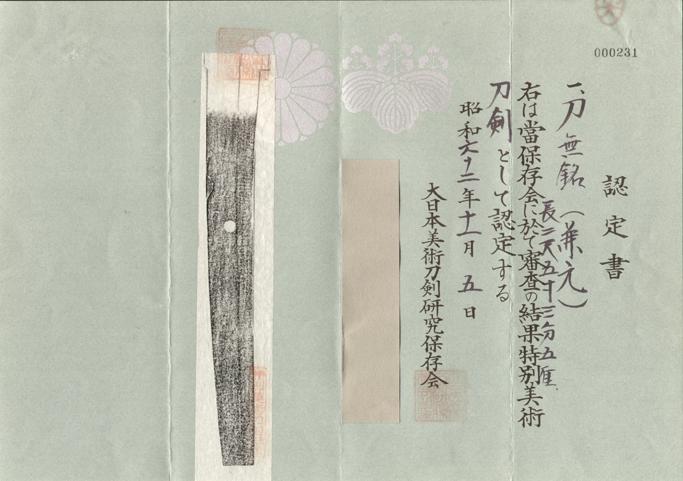 000231
認定書
一、刀 無銘(兼元)
長二尺五寸三分五厘
右は當保存会に於て審査の結果特別美術
刀劍として認定する
昭和六十二年十一月五日
大日本美術刀剣研究保存会